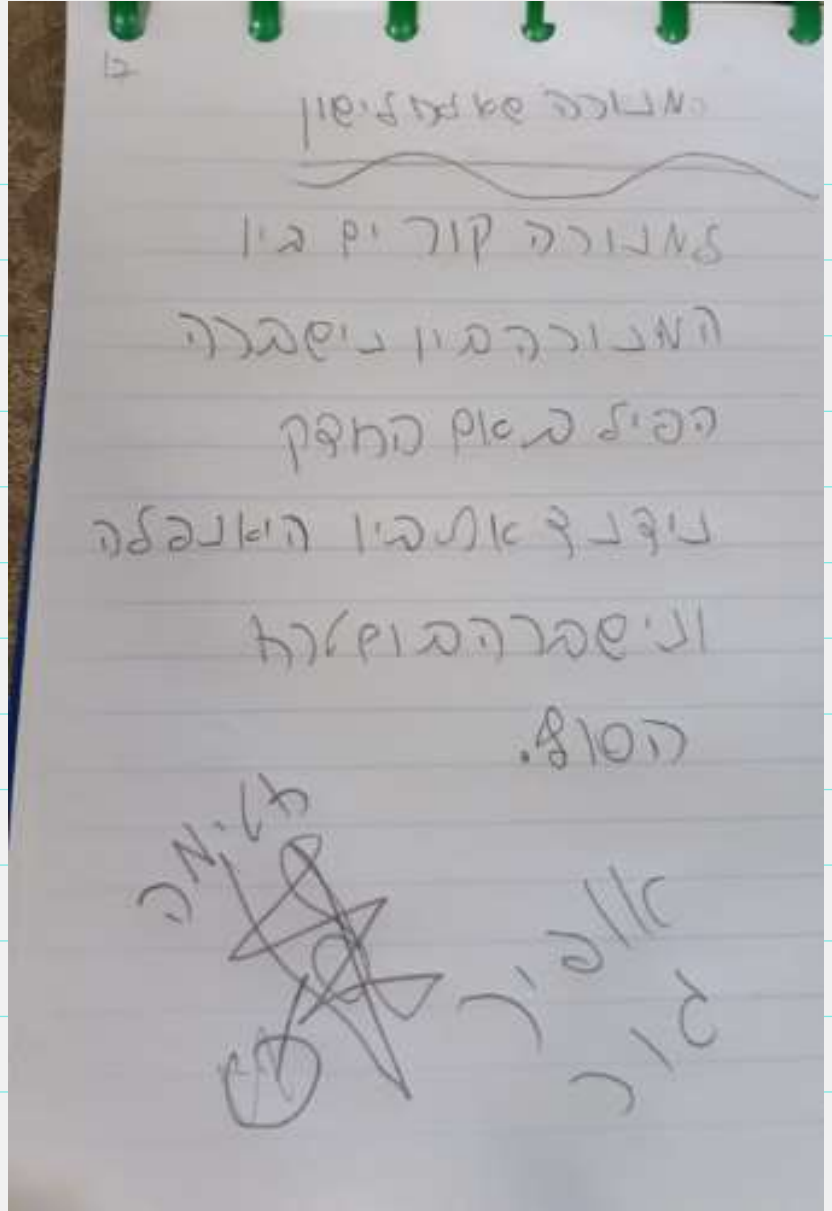 ב1
המנורה שאלח לישון
למנורה קור ים בין
המנורה בין נישברה
הפיל באום החדק
נידנד את בין היא נפלה
ונישברה בום טרח
הסוף.
חטימה
אופיר
גור